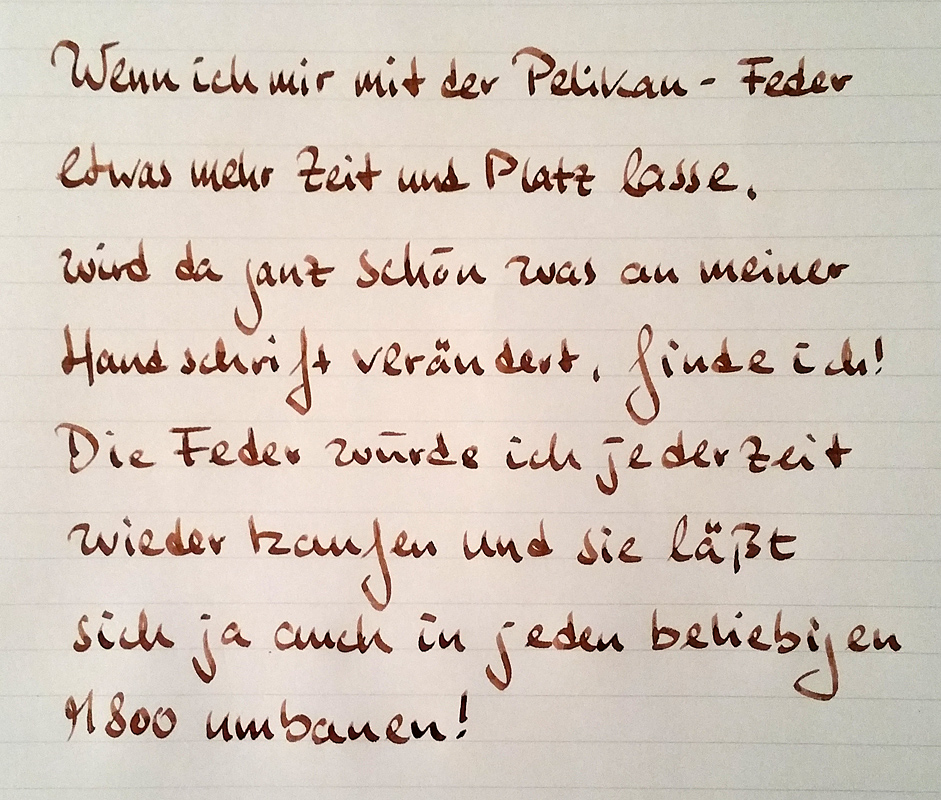 Wenn ich mir mit der Pelikan-Feder
etwas mehr Zeit und Platz lasse,
wird da ganz schön was an meiner
Handschrift verändert, finde ich!
Die Feder würde ich jederzeit
wieder kaufen und sie läßt
sich ja auch in jeden beliebigen
M800 umbauen!